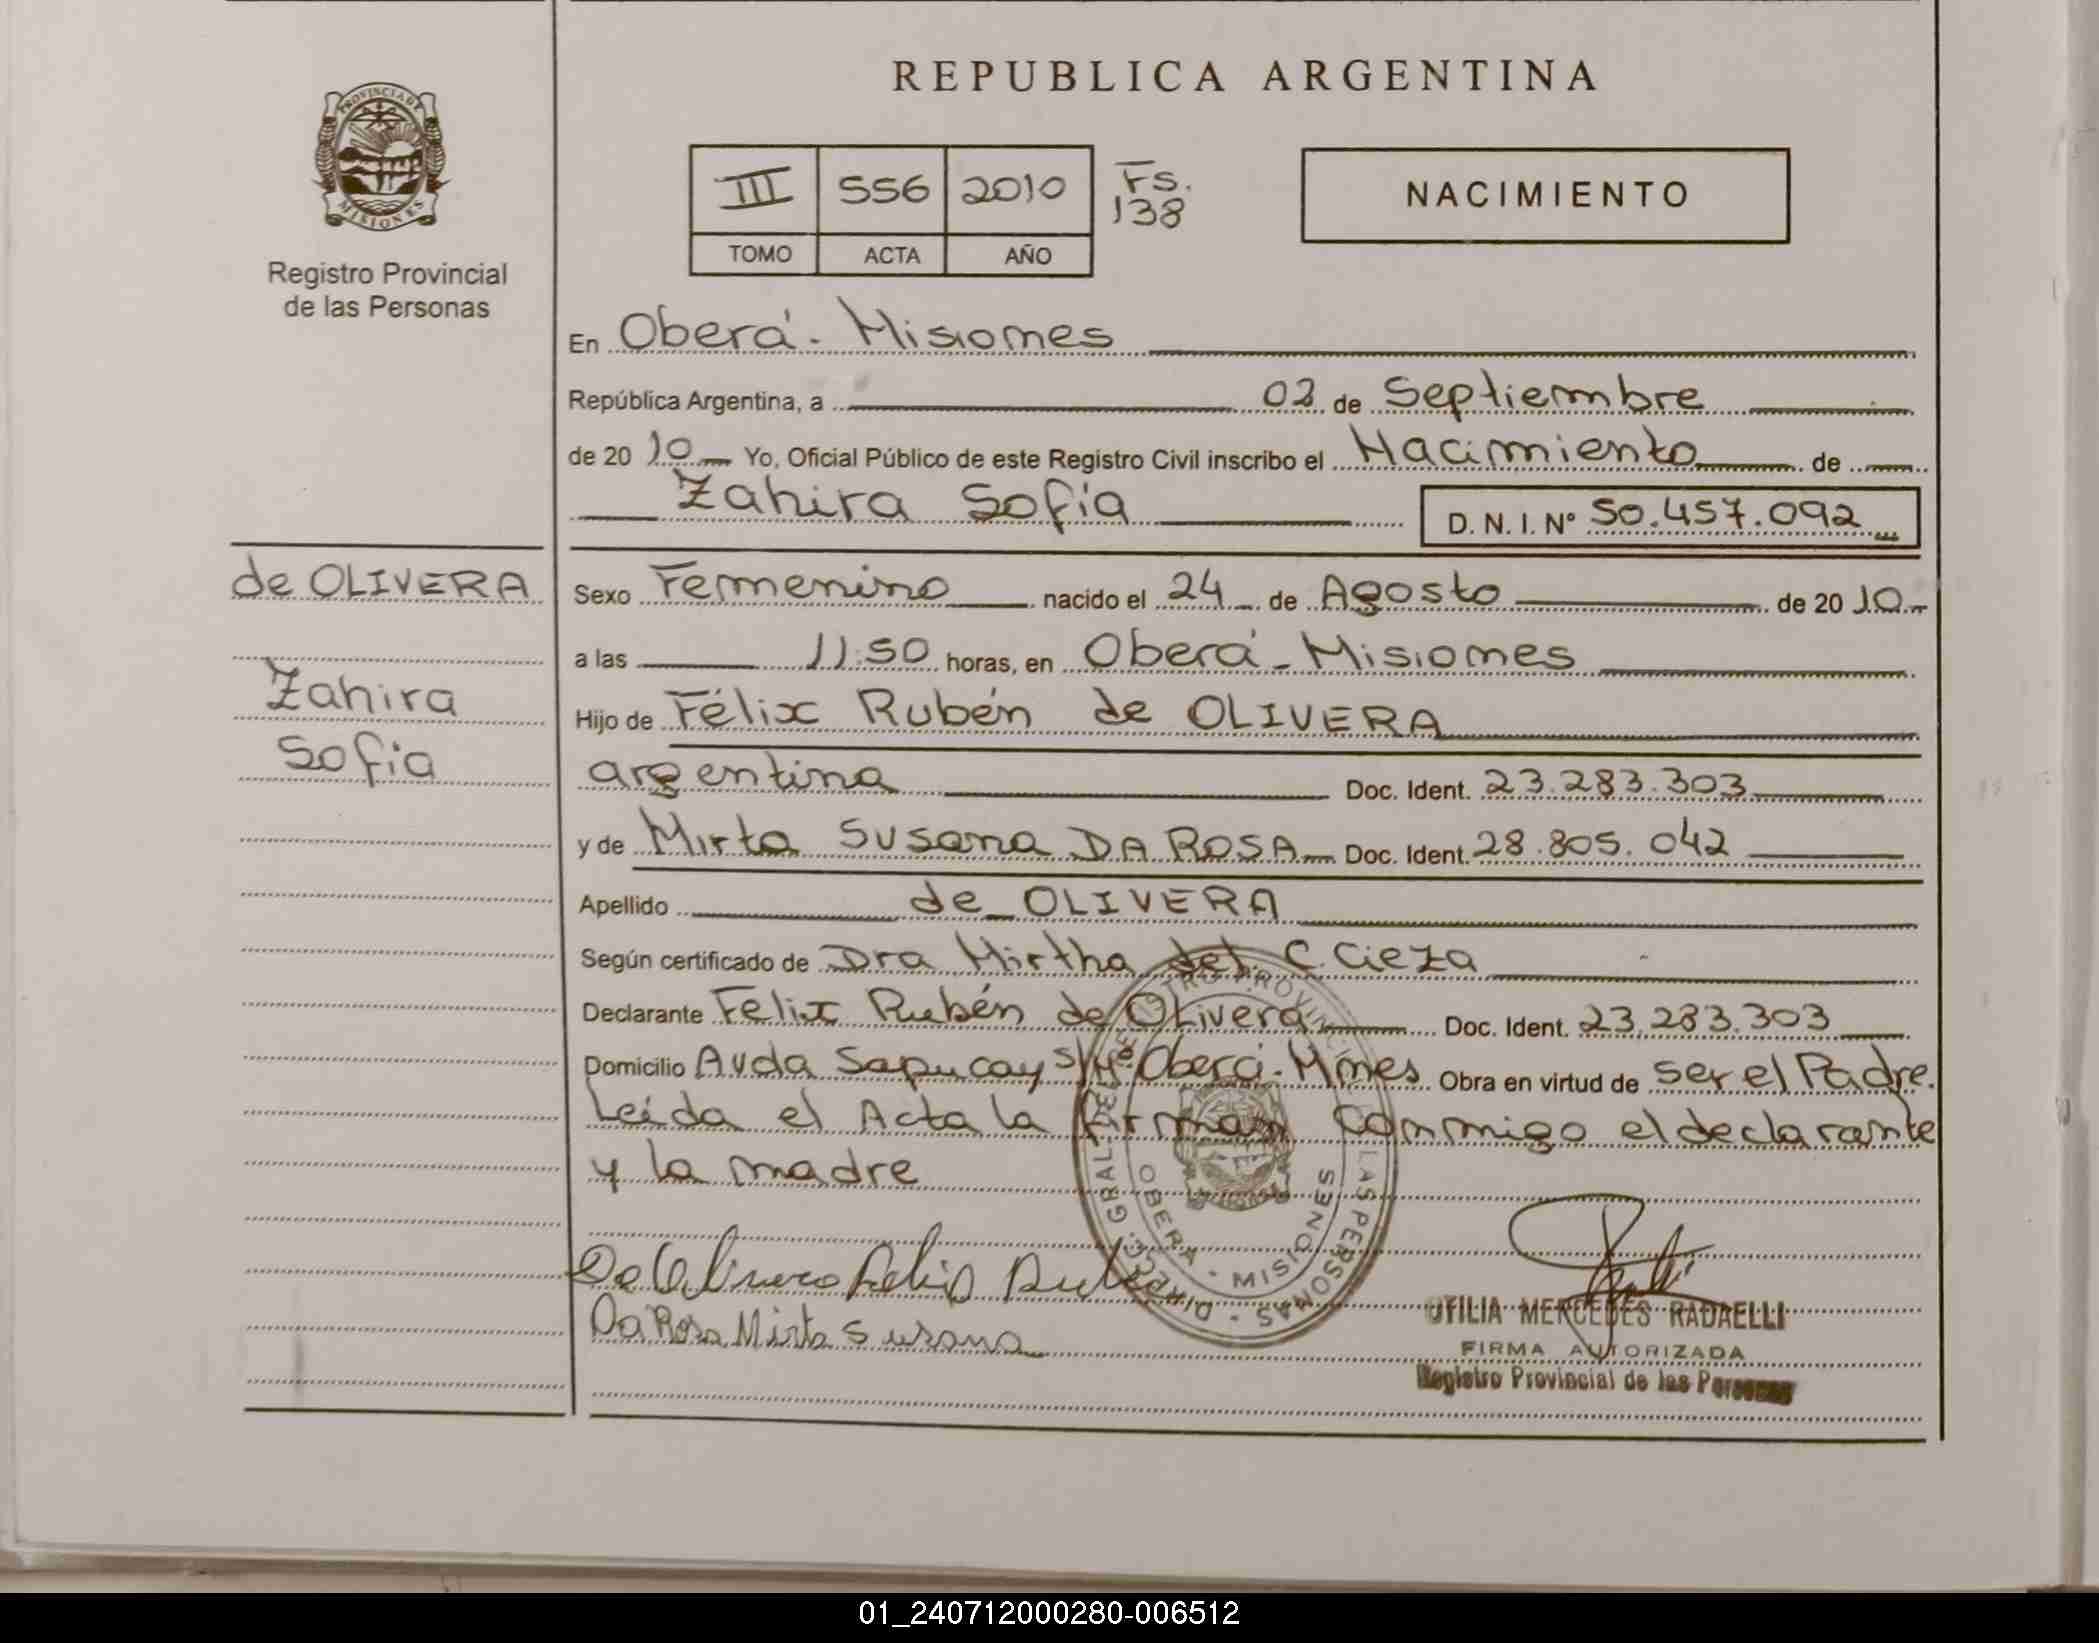 REPUBLICA ARGENTINA
PROVINCIA DE
MISIONES
Registro Provincial
de las Personas
III 556 2010 Fs. 138
TOMO ACTA AÑO
NACIMIENTO
En Oberá - Misiones
República Argentina, a 02 de Septiembre
de 20 10 Yo, Oficial Público de este Registro Civil inscribo el Nacimiento de
Zahira Sofia D. N. I. Nº 50.457.092
de OLIVERA
Zahira
Sofia
Sexo Femenino nacido el 24 de Agosto de 20 10
a las 11:50 horas, en Oberá - Misiones
Hijo de Félix Rubén de OLIVERA
argentina Doc. Ident. 23.283.303
y de Mirta Susana DA ROSA Doc. Ident. 28.805.042
Apellido de OLIVERA
Según certificado de Dra Mirtha del C. Cieza
Declarante Felix Rubén de Olivera Doc. Ident. 23.283.303
Domicilio Avda Sapucay s/Nº Oberá - Mnes Obra en virtud de ser el Padre.
Leída el Acta la firman conmigo el declarante
y la madre
OBERA - MISIONES
Da Rosa Mirta Susana
OTILIA MERCEDES RADAELLI
FIRMA AUTORIZADA
Registro Provincial de las Personas
01_240712000280-006512